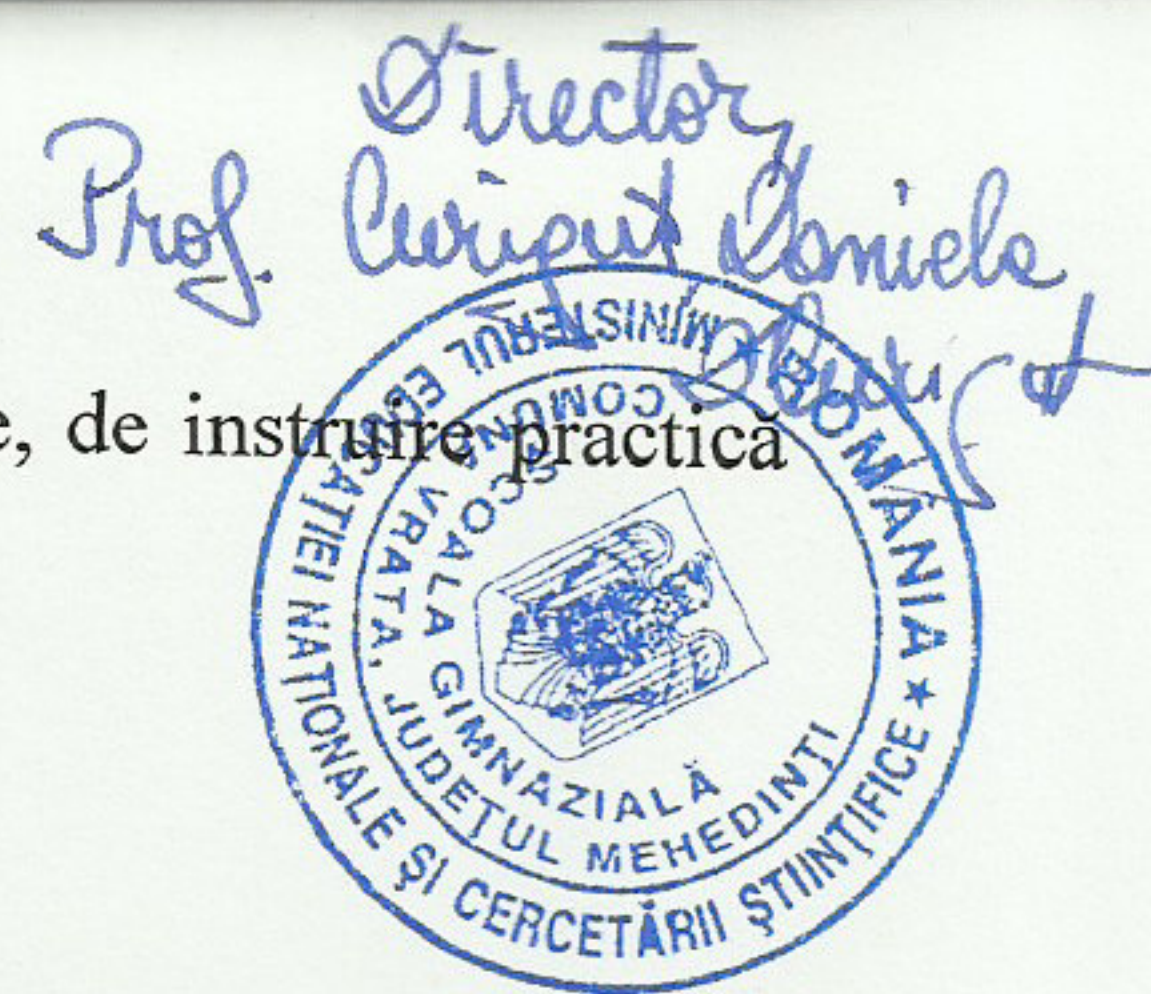 Director,
Prof. Curiguț Daniela
e, de instruire practică
★ ROMÂNIA ★
MINISTERUL EDUCAȚIEI NAȚIONALE ȘI CERCETĂRII ȘTIINȚIFICE
ȘCOALA GIMNAZIALĂ
COMUNA VRATA, JUDEȚUL MEHEDINȚI